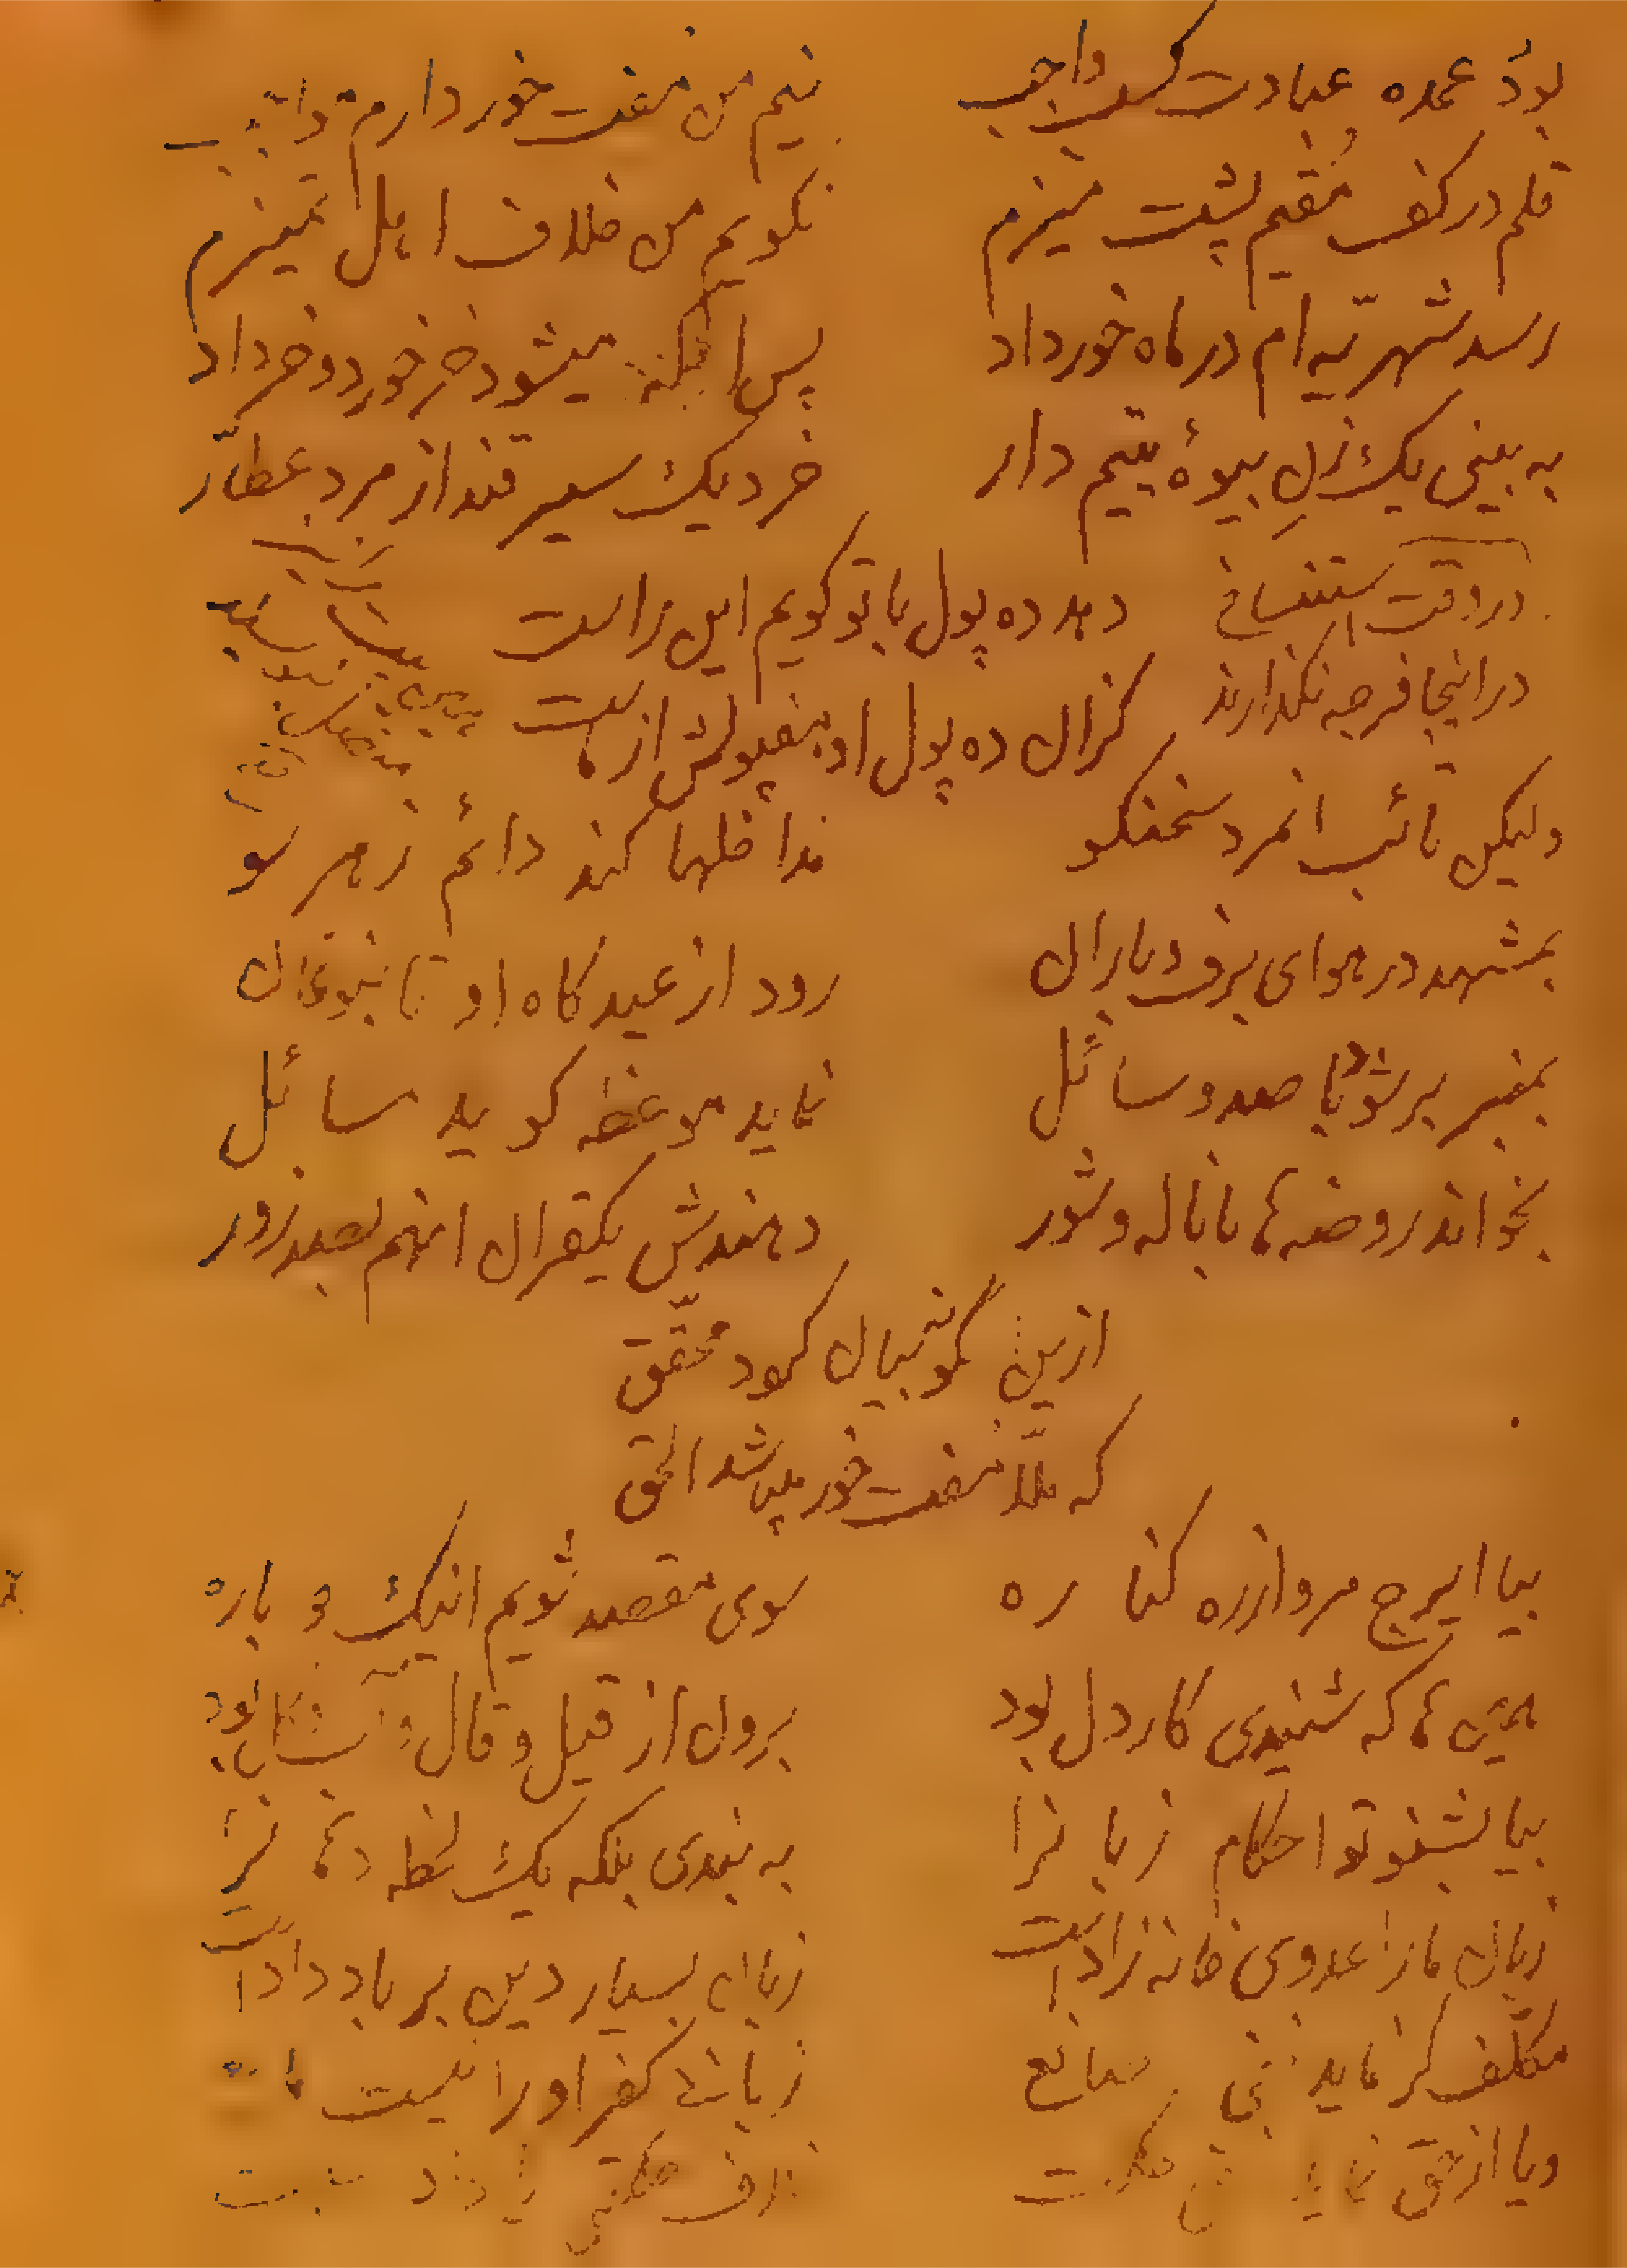 بود عمده عبادت کسب واجب نیم من مفت خور دارم
قلم در کف مقیم پشت میزم نگویم من خلاف اهل تمیزم
رسد شهریه‌ام در ماه خورداد پس میشود خر خورد و خر داد
به بینی یک زن بیوهٔ یتیم دار خرد یک سیر قند از مرد عطار
دهد ده پول با تو گویم این راست
در وقت استنساخ
کزان ده پول او هفپولش از ماست
در اینجا فرجه نگذارند
ولیکن نائب انمرد سخنگو مداخلها کند دائم ز هر سو
بمشهد در هوای برف و باران رود از عیدگاه او تا بنوغان
بمنبر بر شود با صد وسائل نماید موعظه گوید مسائل
بخواند روضه‌ها با ناله و شور دهندش یکقران انهم بصد زور
ازین گونه بیان گردد محقق
که ملا مفت خور میباشد الحق
بیا ایرج مرو از ره کناره سوی مقصد شویم اینک دوباره
همین‌ها که شنیدی کار دل بود برون از قیل و قال و آب بود
بیا بشنو تو احکام زبانرا به بندی بلکه یک لحظه دهانرا
زبان ما را عدوی خانه زاد است زبان بسیار دین بر باد داد است
مکلف گر نماید نفی صانع زبانش کفر او را نیست مانع
و یا از حق نماید نفی حکمت حکمتی